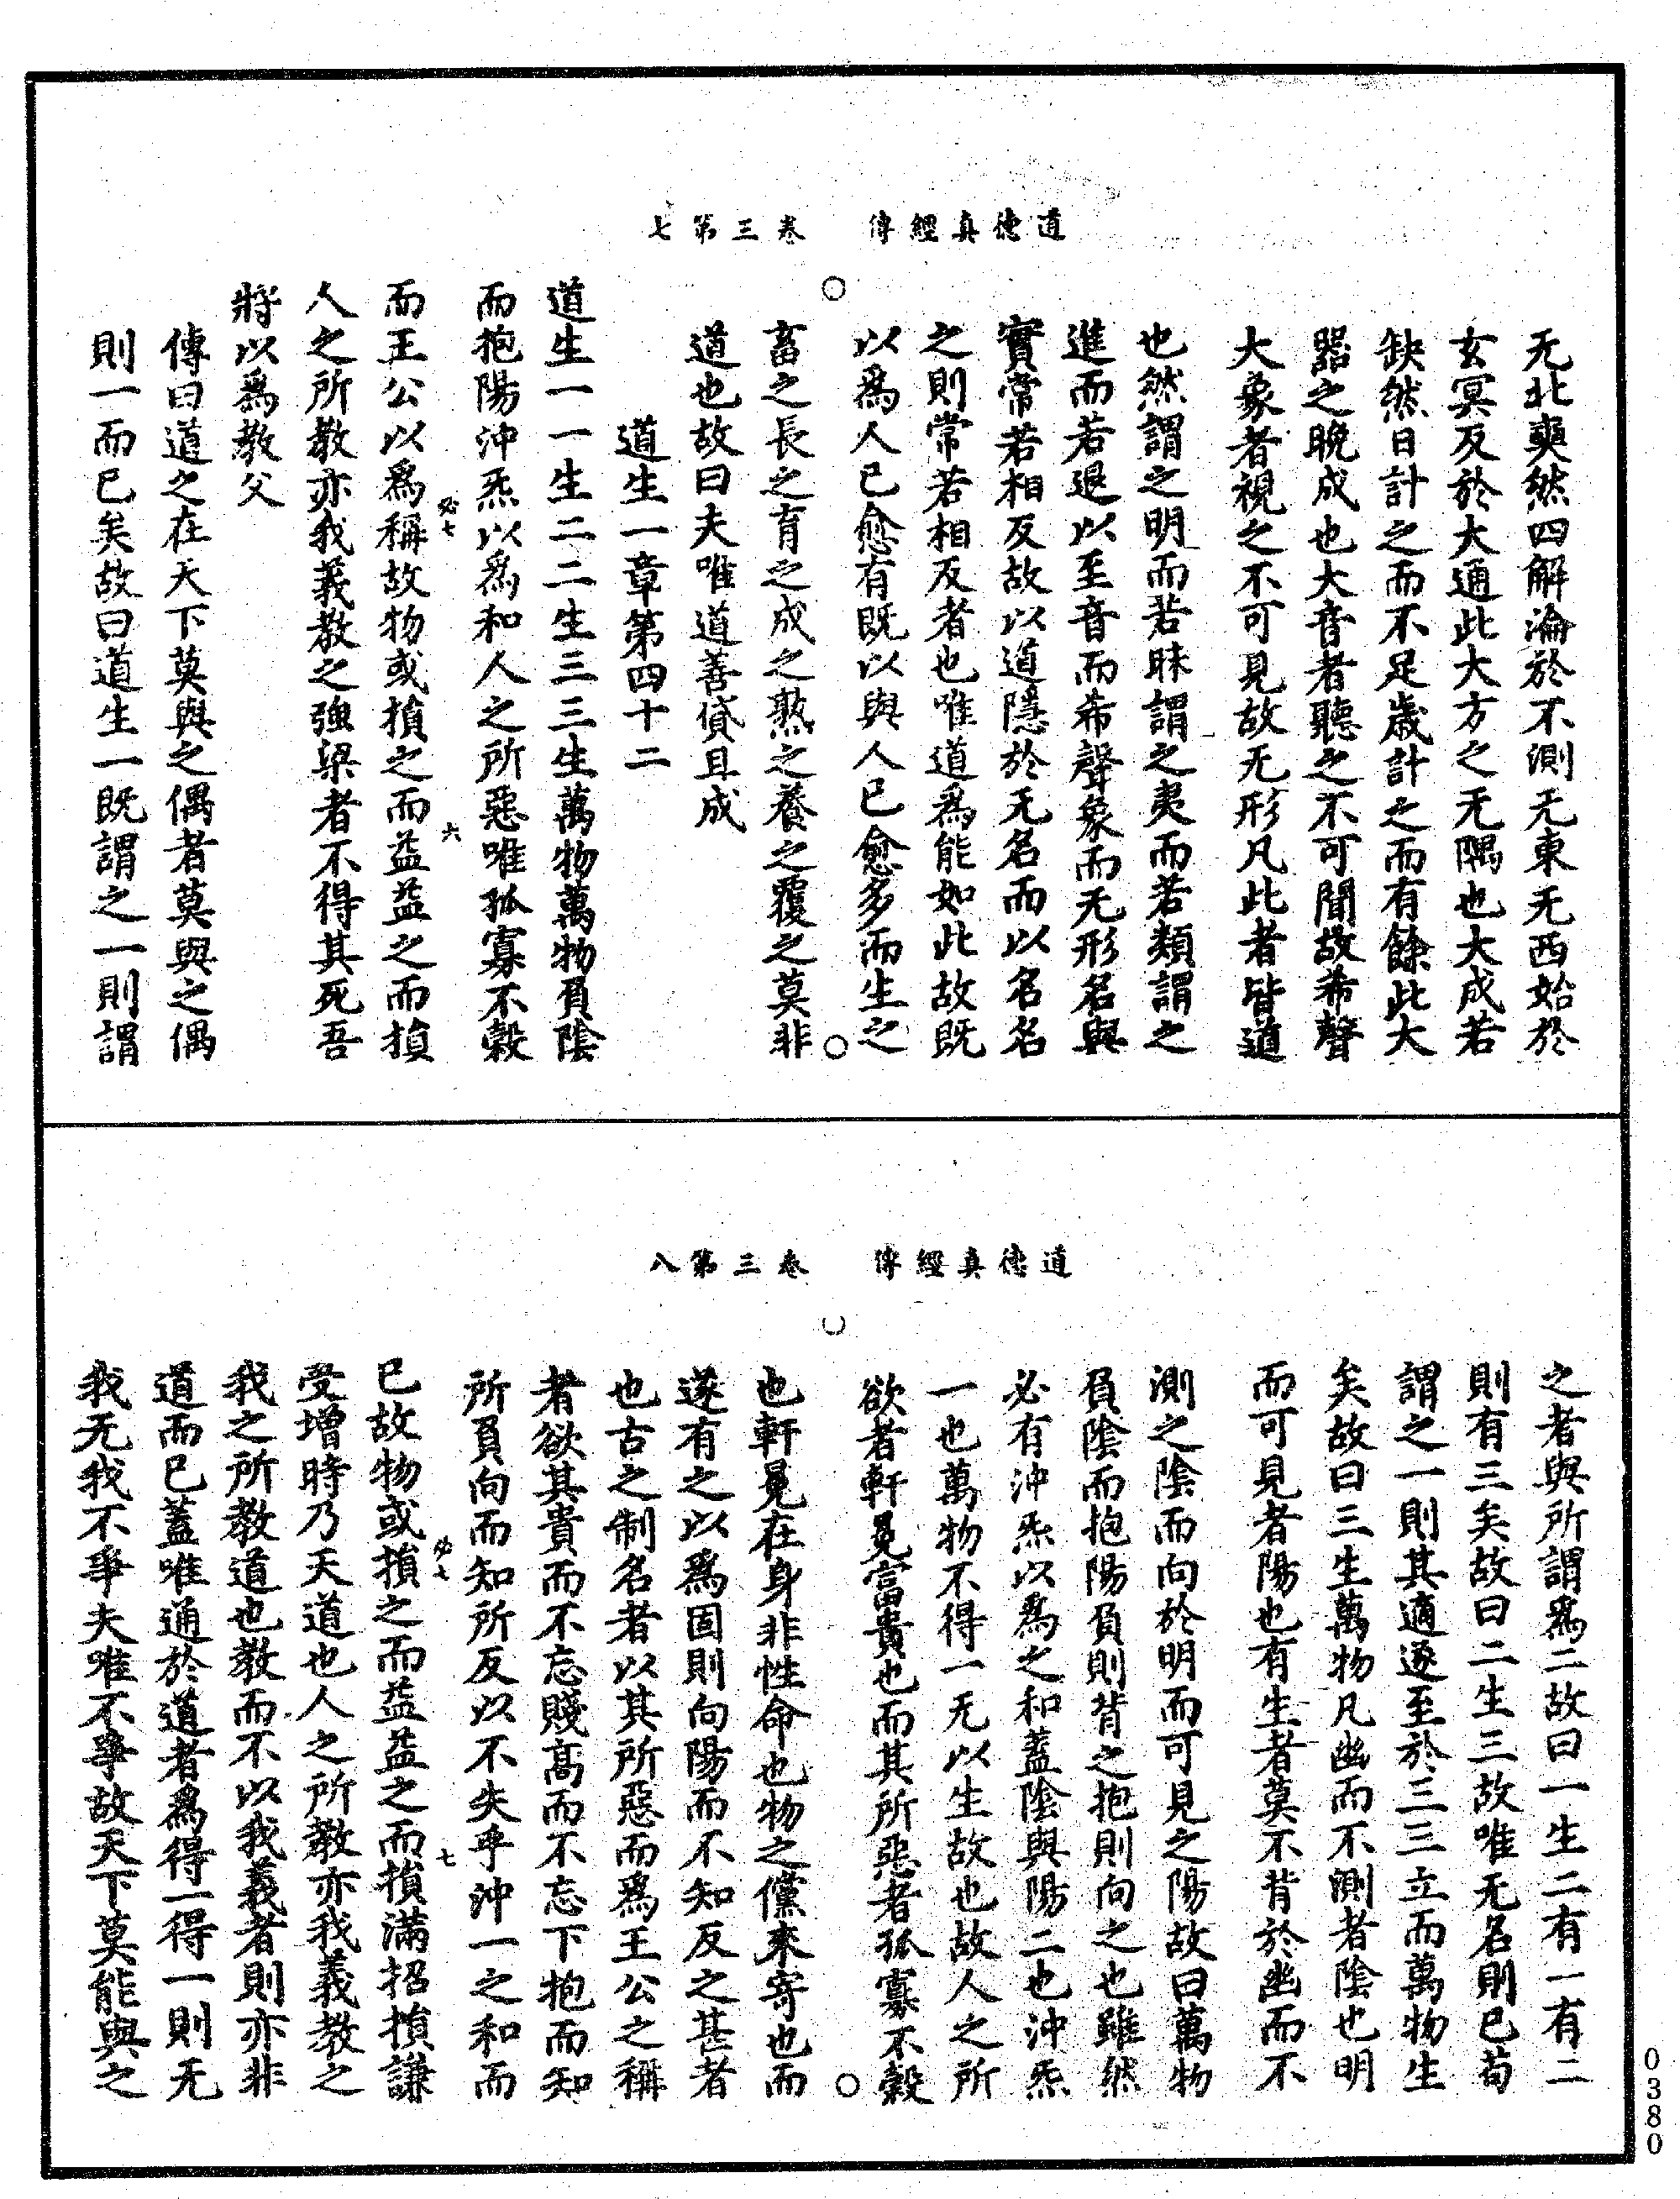 道德真經傳　卷三第七
无北奭然四解淪於不測无東无西始於
玄冥反於大通此大方之无隅也大成若
缺然日計之而不足歲計之而有餘此大
器之晚成也大音者聽之不可聞故希聲
大象者視之不可見故无形凡此者皆道
也然謂之明而若昧謂之夷而若類謂之
進而若退以至音而希聲象而无形名與
實常若相反故以道隱於无名而以名名
之則常若相反者也唯道爲能如此故既
以爲人已愈有既以與人已愈多而生之
畜之長之育之成之熟之養之覆之莫非
道也故曰夫唯道善貸且成
道生一章第四十二
道生一一生二二生三三生萬物萬物負陰
而抱陽沖炁以爲和人之所惡唯孤寡不穀
必七　六
而王公以爲稱故物或損之而益益之而損
人之所教亦我義教之強梁者不得其死吾
將以爲教父
傳曰道之在天下莫與之偶者莫與之偶
則一而已矣故曰道生一既謂之一則謂
道德真經傳　卷三第八
之者與所謂爲二故曰一生二有一有二
則有三矣故曰二生三故唯无名則已苟
謂之一則其適遂至於三三立而萬物生
矣故曰三生萬物凡幽而不測者陰也明
而可見者陽也有生者莫不背於幽而不
測之陰而向於明而可見之陽故曰萬物
負陰而抱陽負則背之抱則向之也雖然
必有沖炁以爲之和蓋陰與陽二也沖炁
一也萬物不得一无以生故也故人之所
欲者軒冕富貴也而其所惡者孤寡不穀
也軒冕在身非性命也物之儻來寄也而
遂有之以爲固則向陽而不知反之甚者
也古之制名者以其所惡而爲王公之稱
者欲其貴而不忘賤高而不忘下抱而知
所負向而知所反以不失乎沖一之和而
必七　七
已故物或損之而益益之而損滿招損謙
受增時乃天道也人之所教亦我義教之
我之所教道也教而不以我義者則亦非
道而已蓋唯通於道者爲得一得一則无
我无我不爭夫唯不爭故天下莫能與之
0380